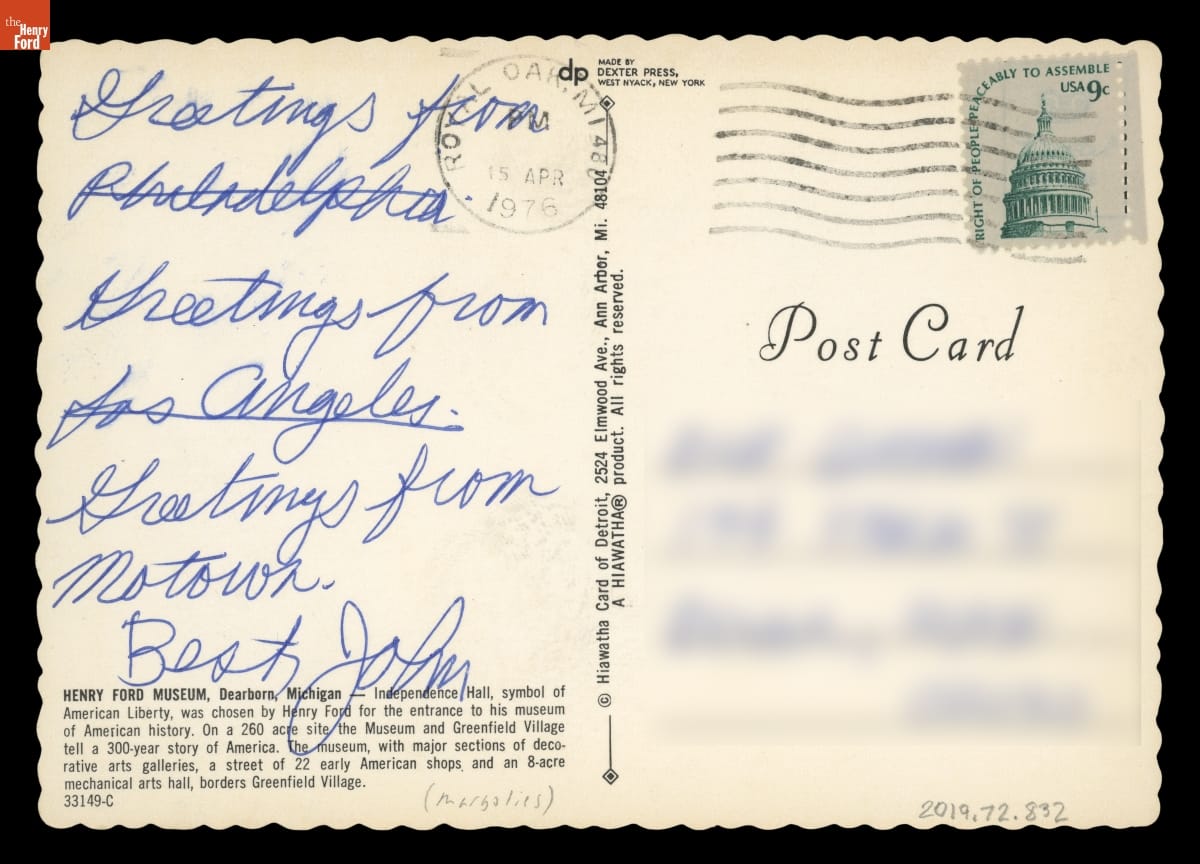 the
Henry
Ford
Greetings from
Philadelphia.
Greetings from
Los Angeles.
Greetings from
Motown.
Best, John
HENRY FORD MUSEUM, Dearborn, Michigan — Independence Hall, symbol of
American Liberty, was chosen by Henry Ford for the entrance to his museum
of American history. On a 260 acre site the Museum and Greenfield Village
tell a 300-year story of America. The museum, with major sections of deco-
rative arts galleries, a street of 22 early American shops and an 8-acre
mechanical arts hall, borders Greenfield Village.
33149-C
(margolies)
ROYAL OAK, MI 480
PM
15 APR
1976
dp
MADE BY
DEXTER PRESS,
WEST NYACK, NEW YORK
© Hiawatha Card of Detroit, 2524 Elmwood Ave., Ann Arbor, Mi. 48104
A HIAWATHA® product. All rights reserved.
RIGHT OF PEOPLE PEACEABLY TO ASSEMBLE
USA 9c
Post Card
2019.72.832